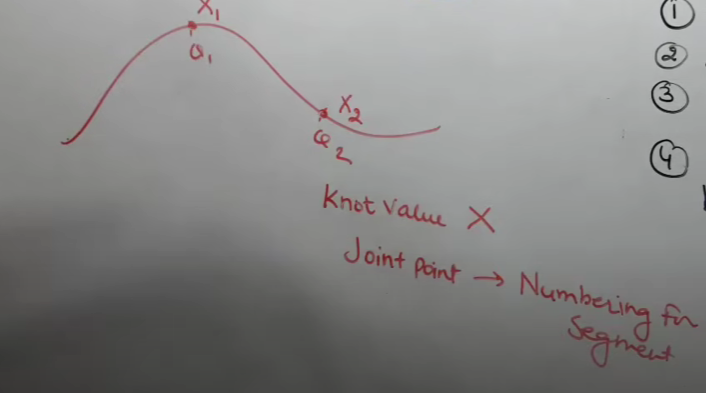 X1
Q1
X2
Q2
Knot Value X
Joint point → Numbering for
Segment
①
②
③
④